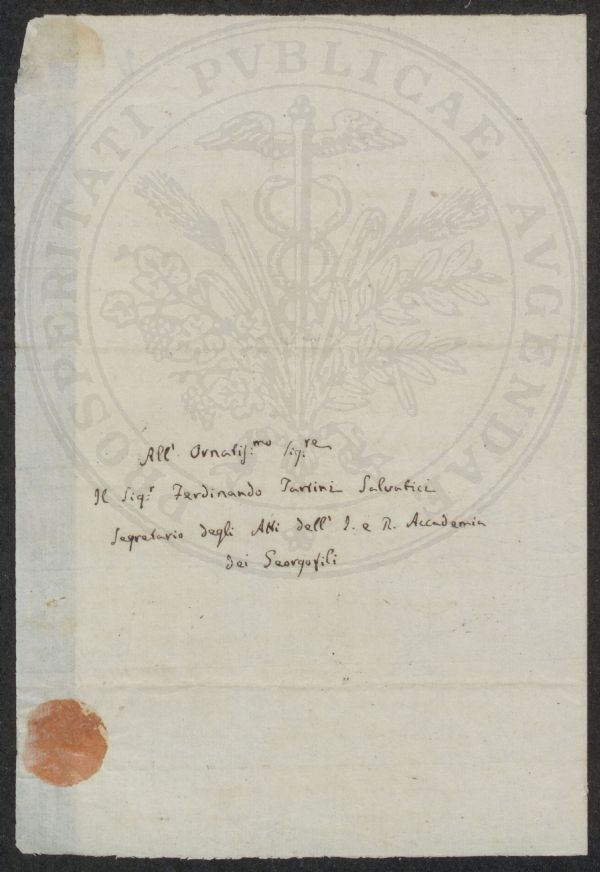 PROSPERITATI PVBLICAE AVGENDAE
All' Ornatis.mo Sig.re
Il Sig.r Ferdinando Tartini Salvatici
Segretario degli Atti dell' I. e R. Accademia
dei Georgofili